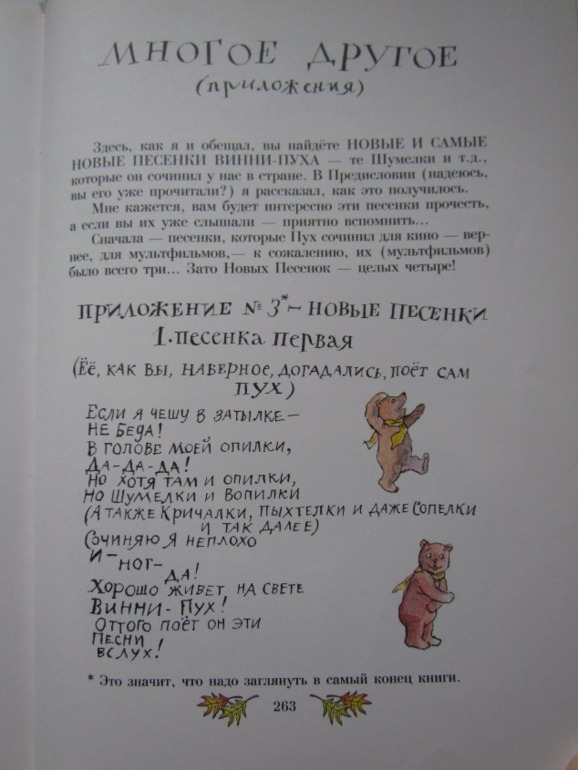 МНОГОЕ ДРУГОЕ
(приложения)
Здесь, как я и обещал, вы найдёте НОВЫЕ И САМЫЕ
НОВЫЕ ПЕСЕНКИ ВИННИ-ПУХА — те Шумелки и т.д.,
которые он сочинил у нас в стране. В Предисловии (надеюсь,
вы его уже прочитали?) я рассказал, как это получилось.
Мне кажется, вам будет интересно эти песенки прочесть,
а если вы их уже слышали — приятно вспомнить...
Сначала — песенки, которые Пух сочинил для кино — вер-
нее, для мультфильмов,— к сожалению, их (мультфильмов)
было всего три... Зато Новых Песенок — целых четыре!
ПРИЛОЖЕНИЕ № 3* — НОВЫЕ ПЕСЕНКИ
1. ПЕСЕНКА ПЕРВАЯ
(ЕЁ, КАК ВЫ, НАВЕРНОЕ, ДОГАДАЛИСЬ, ПОЁТ САМ
ПУХ)
ЕСЛИ Я ЧЕШУ В ЗАТЫЛКЕ —
НЕ БЕДА!
В ГОЛОВЕ МОЕЙ ОПИЛКИ,
ДА-ДА-ДА!
НО ХОТЯ ТАМ И ОПИЛКИ,
НО ШУМЕЛКИ И ВОПИЛКИ
(А ТАКЖЕ КРИЧАЛКИ, ПЫХТЕЛКИ И ДАЖЕ СОПЕЛКИ
И ТАК ДАЛЕЕ)
СОЧИНЯЮ Я НЕПЛОХО
И-
НОГ-
ДА!
ХОРОШО ЖИВЕТ НА СВЕТЕ
ВИННИ-ПУХ!
ОТТОГО ПОЁТ ОН ЭТИ
ПЕСНИ
ВСЛУХ!
* Это значит, что надо заглянуть в самый конец книги.
263